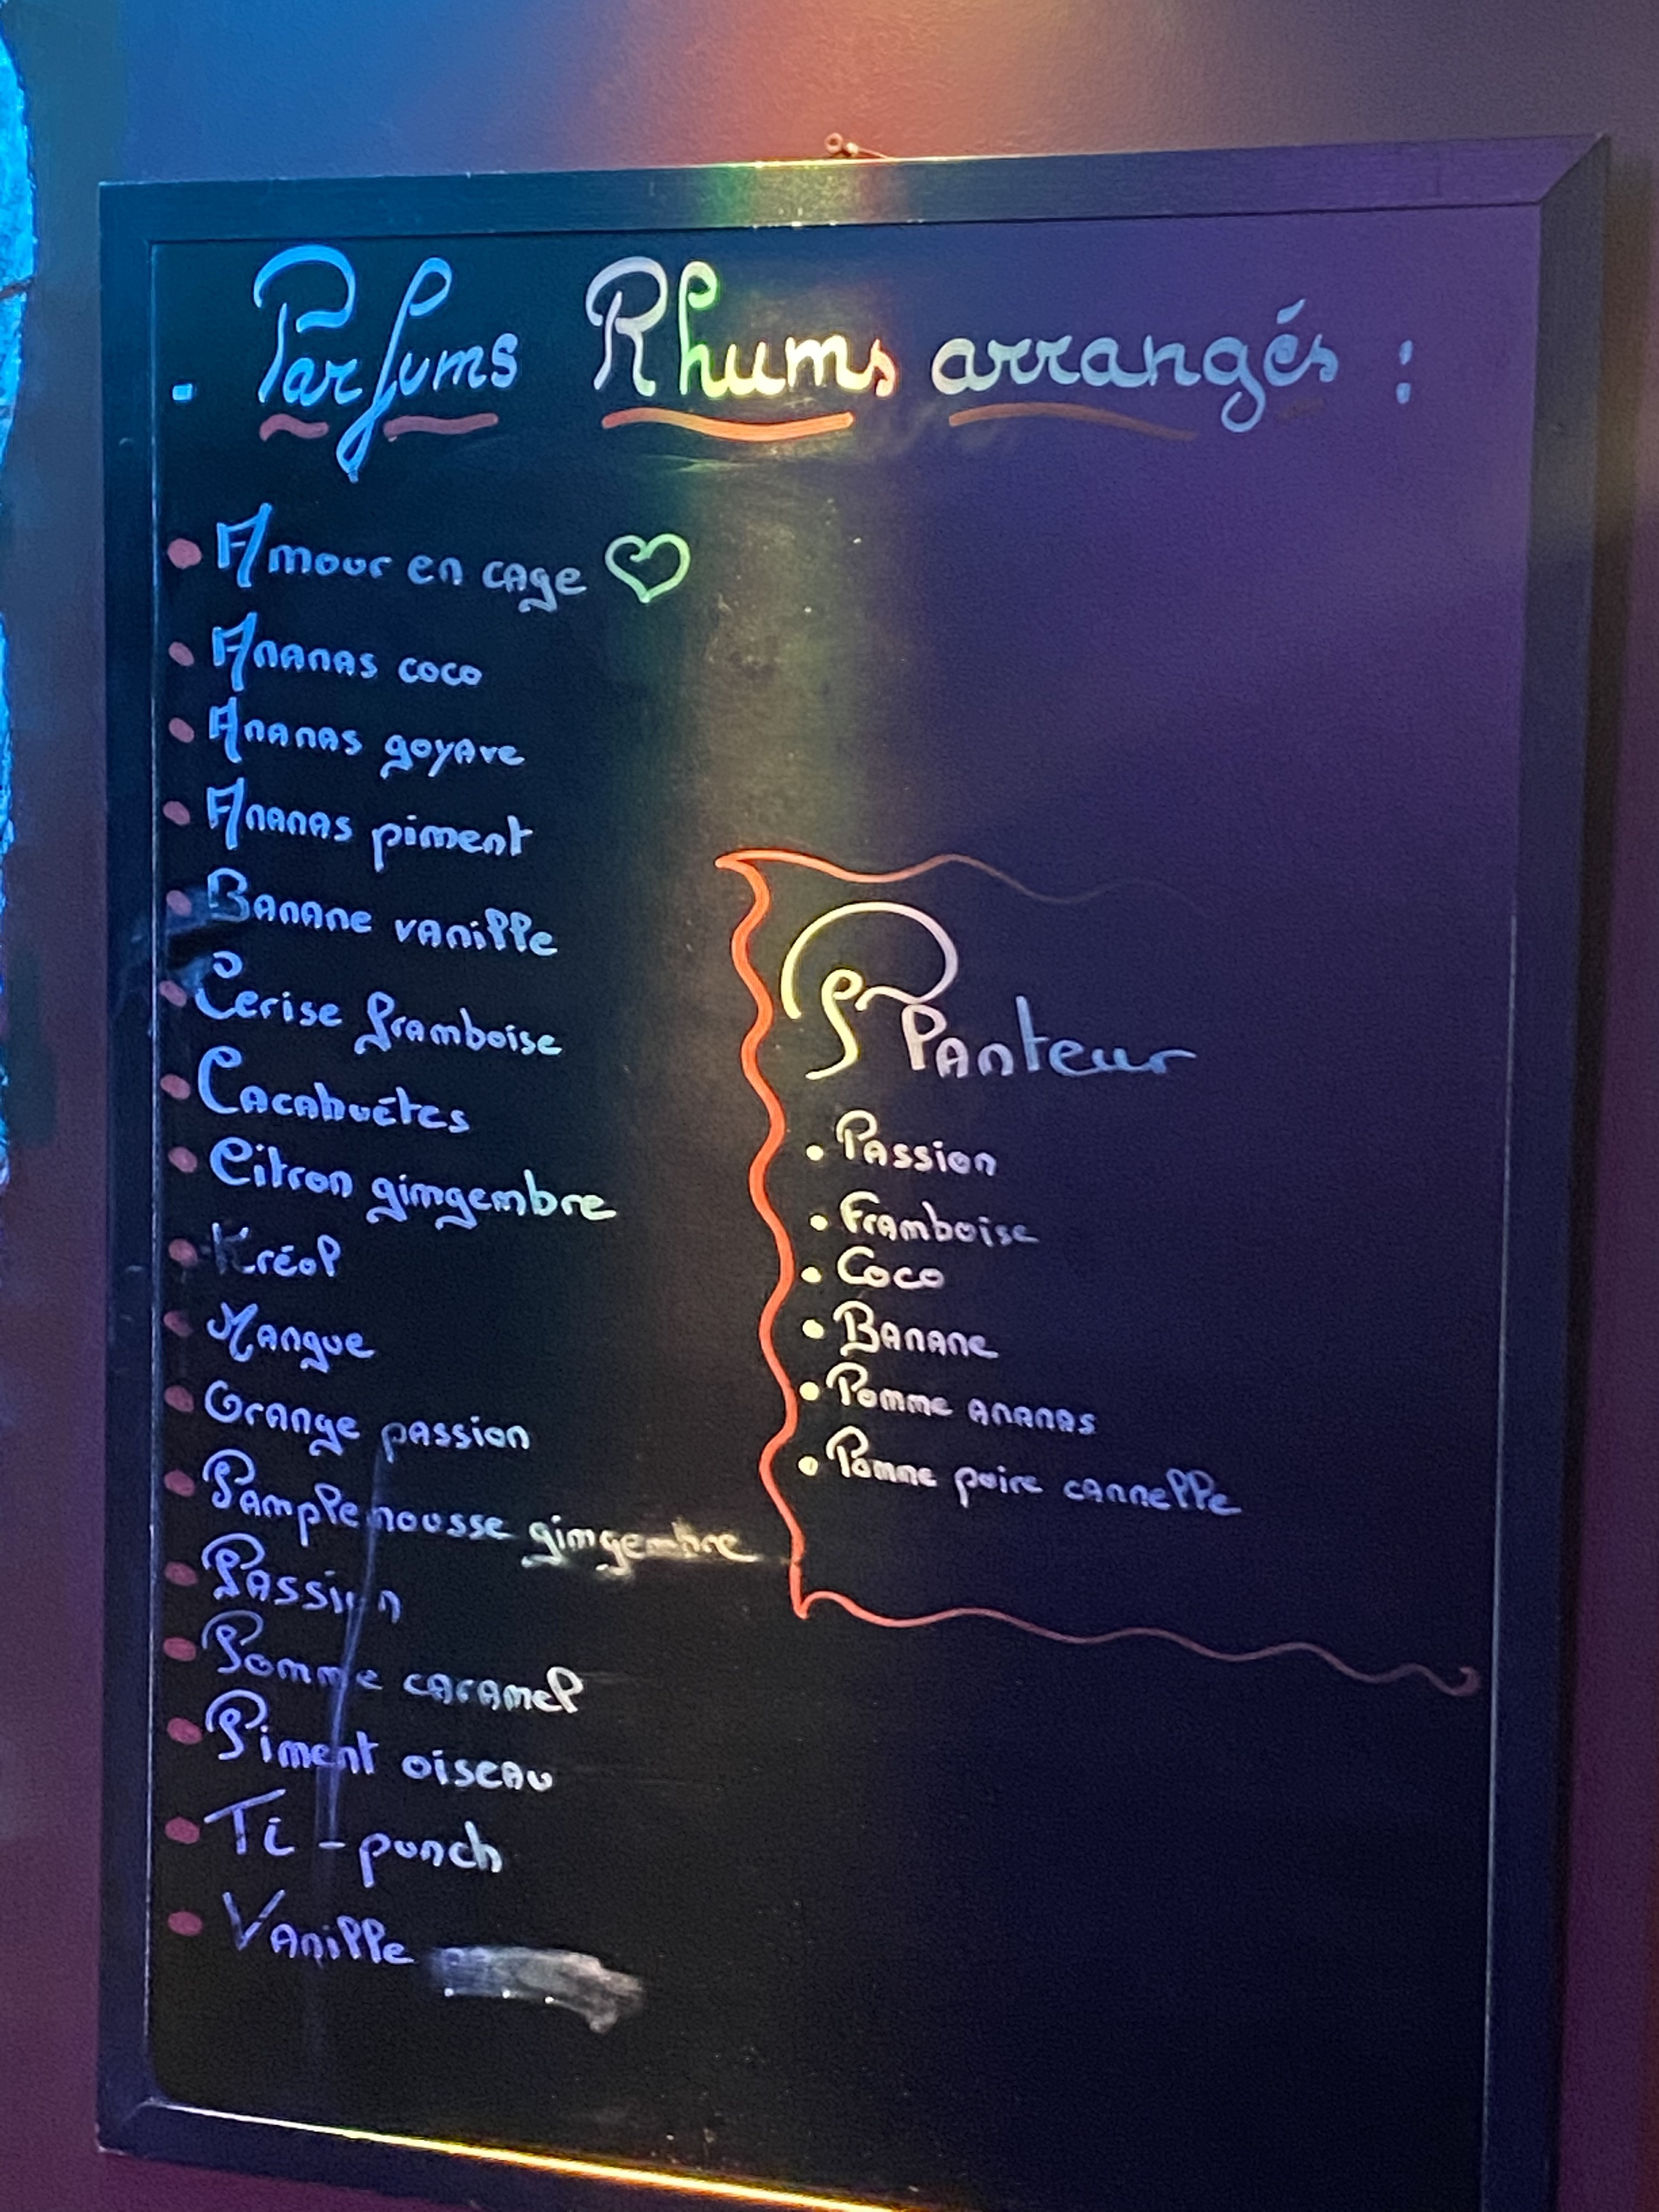 . Parfums Rhums arrangés :
• Amour en cage ♡
• Ananas coco
• Ananas goyave
• Ananas piment
• Banane vanille
• Cerise framboise
• Cacahuètes
• Citron gimgembre
• Kréol
• Mangue
• Orange passion
• Pamplemousse gimgembre
• Passion
• Pomme caramel
• Piment oiseau
• Ti-punch
• Vanille
Planteur
• Passion
• Framboise
• Coco
• Banane
• Pomme ananas
• Pomme poire cannelle